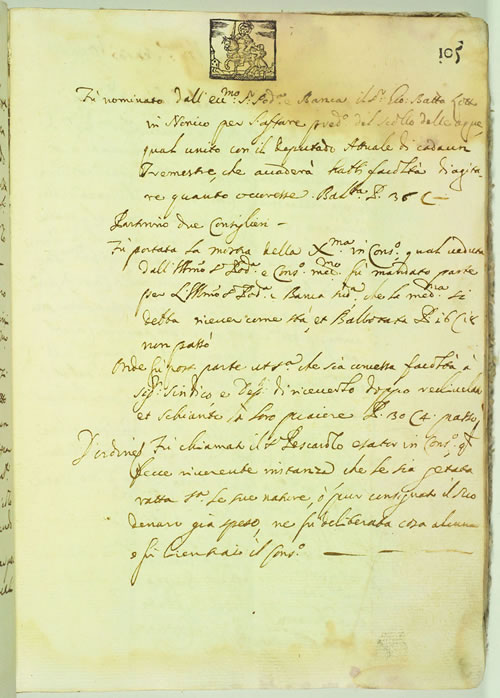 105
Fù nominato dall'ecc.mo S.r Pod.e e Banca il S.r Gio: Batta
in Nonico per l'affare pred.o del Scolo dell'acque
qual unito con il Deputado Attuale di cadaun
Trimestre, che averà tutta facoltà d'agita-
re quanto occoresse. Ball.ta P. 36 C —
Partirono due Consiglieri —
Fù portata la mostra della X.ma in Cons.o, qual veduta
dall'Ill.mo S.r Pod.a e Cons.o med.mo fù mandato parte
per L'Ill.mo S.r Pod.a e Banca sud.a, che la med.ma si
debba ricever come stà, et Ballotata P. 16 C. 18
non passò
Onde fù post. parte ut s.a che sia concessa facoltà à
Sig.ri Sindico, e Dep.i di riceverlo doppo
et à loro piacere P. 30 C 4. passò
D'ordine fù chiamat. il S.r Pescarolo esator in Cons.o, q.l
fece riverente instanza che le sia
ratta s.a le sue nature, ò pur consignati il suo
denaro già speso, ne fù deliberata cosa alcuna
e fù licentiato il Cons.o —